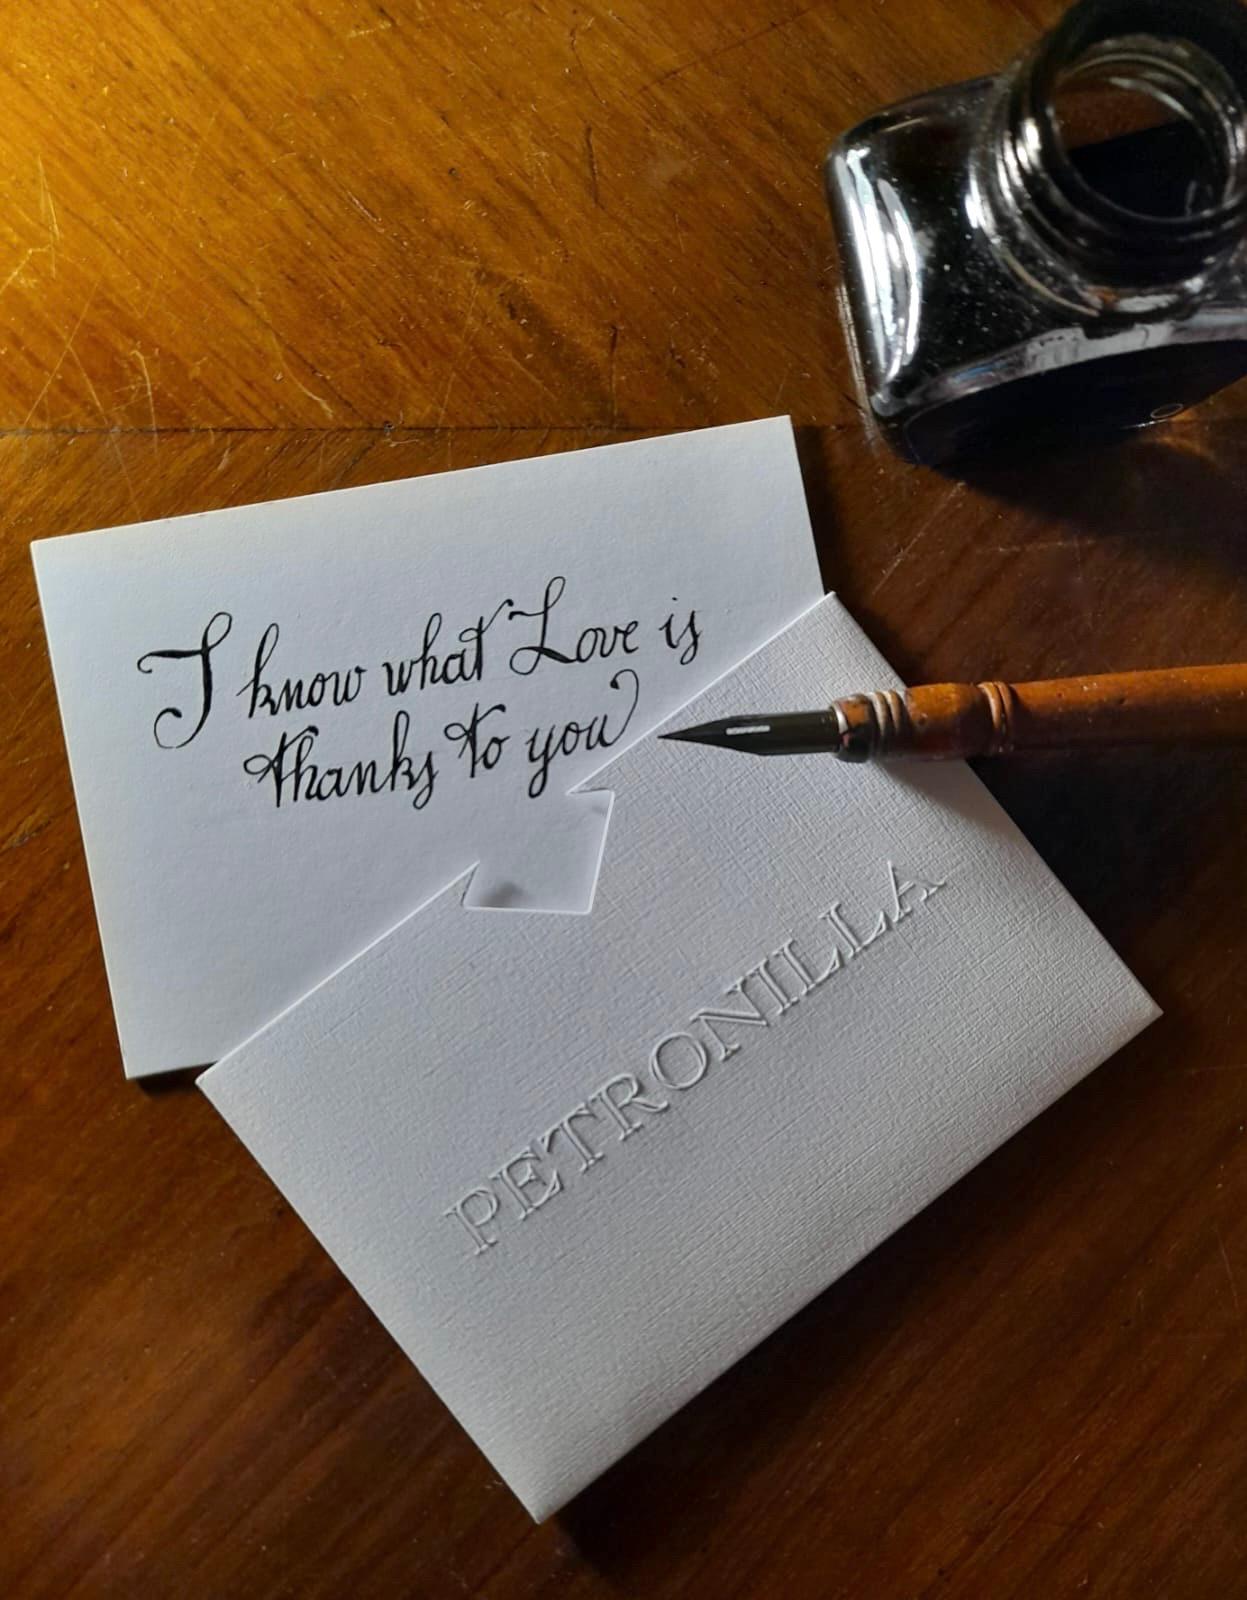 I know what Love is
thanks to you
PETRONILLA